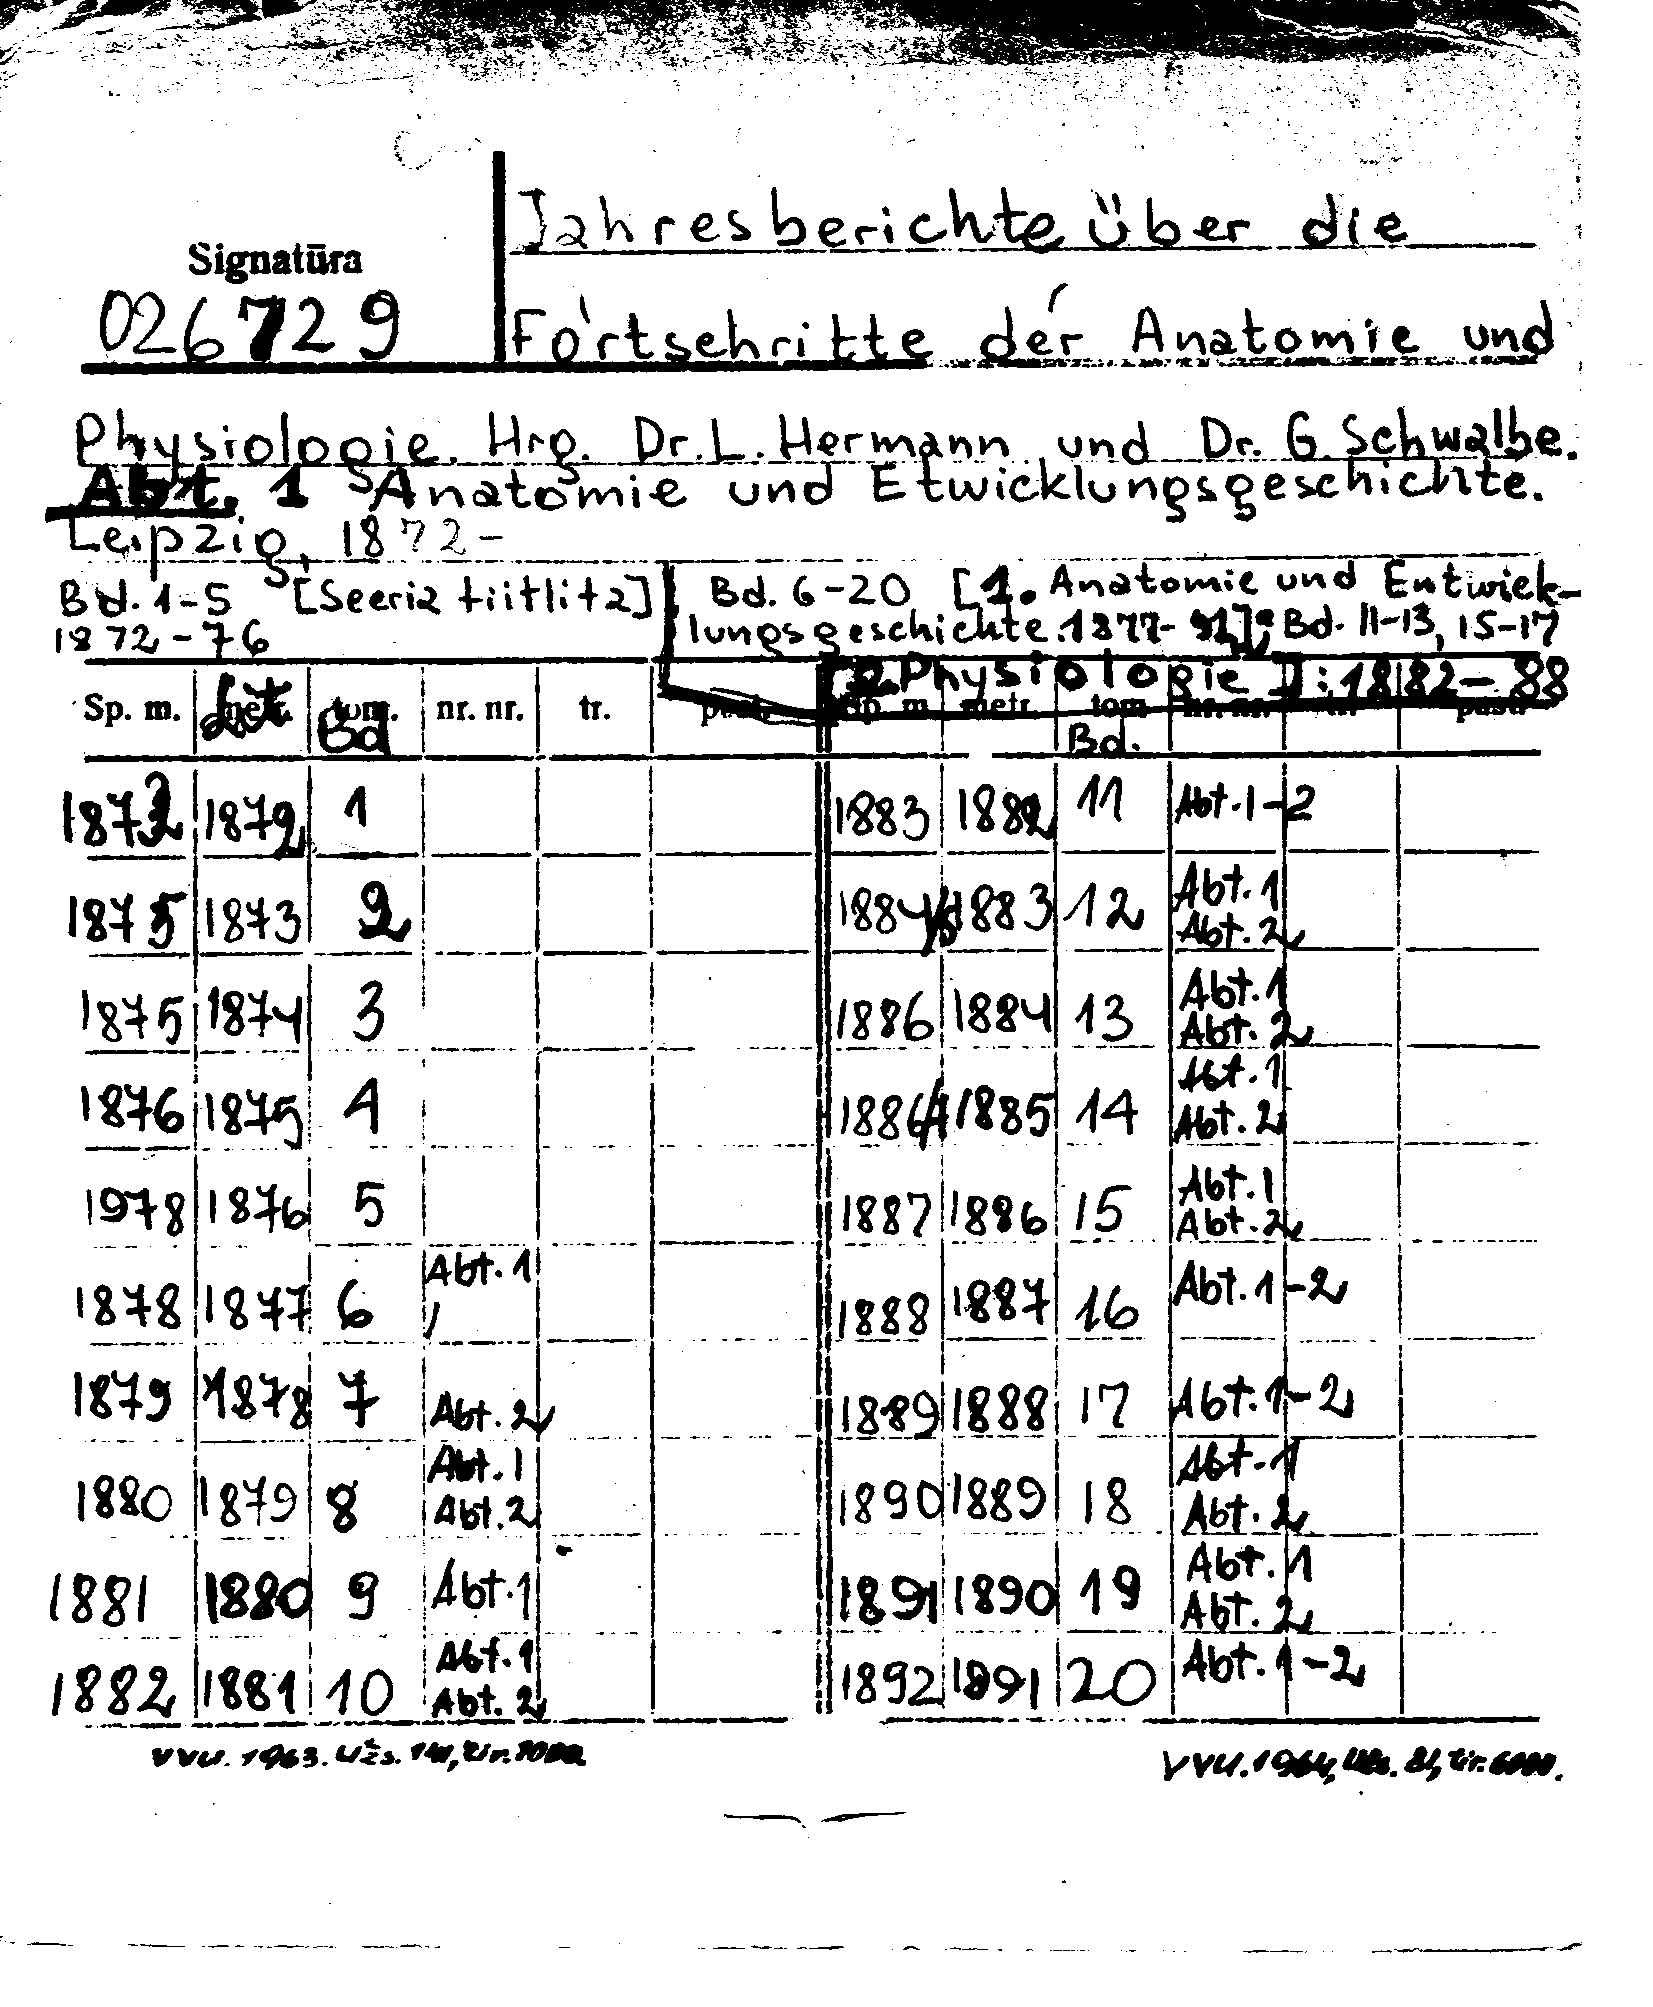 Jahresberichte über die
Signatūra
026729
Fortschritte der Anatomie und
Physiologie. Hrg. Dr. L. Hermann und Dr. G. Schwalbe.
Abt. 1 Anatomie und Etwicklungsgeschichte.
Leipzig, 1872-
Bd. 1-5 [Seeria tiitlita] Bd. 6-20 [1. Anatomie und Entwick-
1872-76 lungsgeschichte. 1877-91]; Bd. 11-13, 15-17
Physiologie]: 1882-88
Sp. m. tom. nr. nr. tr. Sp. m. metr. tom nr. nr. tr. pastr
Bd Bd.
1873 1872 1 1883 1882 11 Abt. 1-2
1875 1873 2 1884/5 1883 12 Abt. 1
Abt. 2
1875 1874 3 1886 1884 13 Abt. 1
Abt. 2
1876 1875 4 1886 1885 14 Abt. 1
Abt. 2
1978 1876 5 1887 1886 15 Abt. 1
Abt. 2
1878 1877 6 Abt. 1 1888 1887 16 Abt. 1-2
1879 1878 7 Abt. 2 1889 1888 17 Abt. 1-2
1880 1879 8 Abt. 1 1890 1889 18 Abt. 1
Abt. 2 Abt. 2
1881 1880 9 Abt. 1 1891 1890 19 Abt. 1
Abt. 2
1882 1881 10 Abt. 1 1892 1891 20 Abt. 1-2
Abt. 2
VVU. 1963. Užs. VVU. 1964,